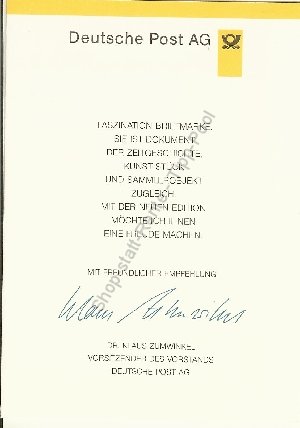 Deutsche Post AG
FASZINATION BRIEFMARKE.
SIE IST DOKUMENT
DER ZEITGESCHICHTE,
KUNSTSTÜCK
UND SAMMLEROBJEKT
ZUGLEICH.
MIT DER NEUEN EDITION
MÖCHTE ICH IHNEN
EINE FREUDE MACHEN.
MIT FREUNDLICHER EMPFEHLUNG
Klaus Zumwinkel
DR. KLAUS ZUMWINKEL
VORSITZENDER DES VORSTANDS
DEUTSCHE POST AG